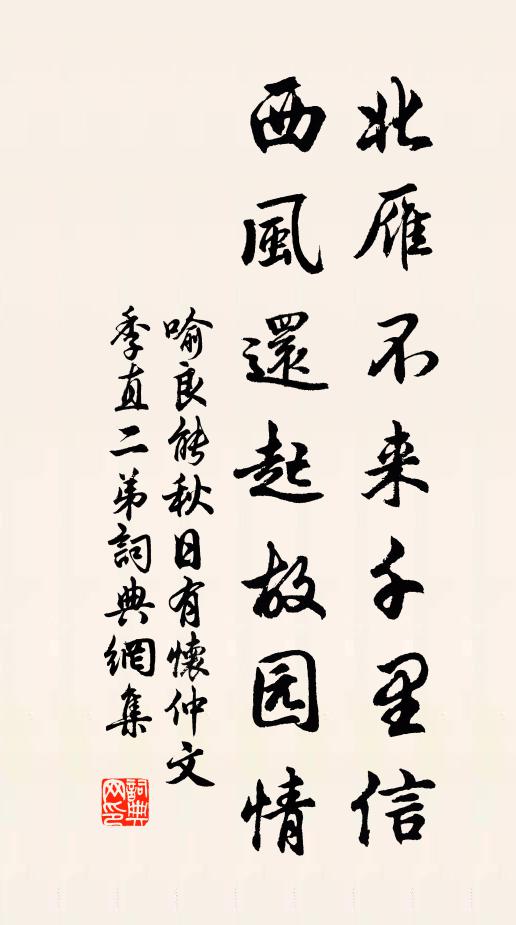 北雁不来千里信
西風還起故园情
喻良能秋日有懷仲文
季直二弟詞典網集
詞典
网印